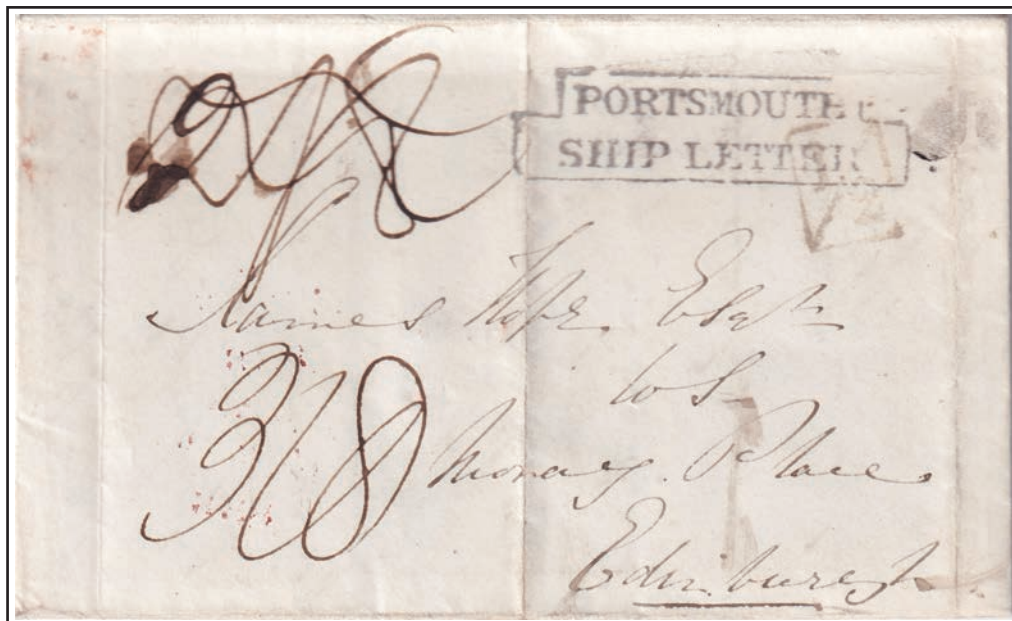 PORTSMOUTH
SHIP LETTER
James Hope Esqr
WS
Moray Place
Edinburgh
3/8